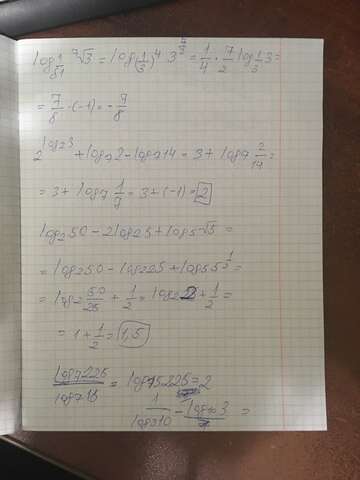 log 1/81 ⁷√3 = log(1/3)⁴ 3 = 1/4 · 7/2 log 1/3 3 =
= 7/8 · (-1) = -7/8
2^log23 + log72 - log714 = 3 + log7 2/14 =
= 3 + log7 1/7 = 3 + (-1) = 2
log250 - 2log25 + log5√5 =
= log250 - log225 + log55^1/2 =
= log2 50/25 + 1/2 = log22 + 1/2 =
= 1 + 1/2 = 1,5
log7225 / log715 = log15225 = 2
1/log310 - log103 =